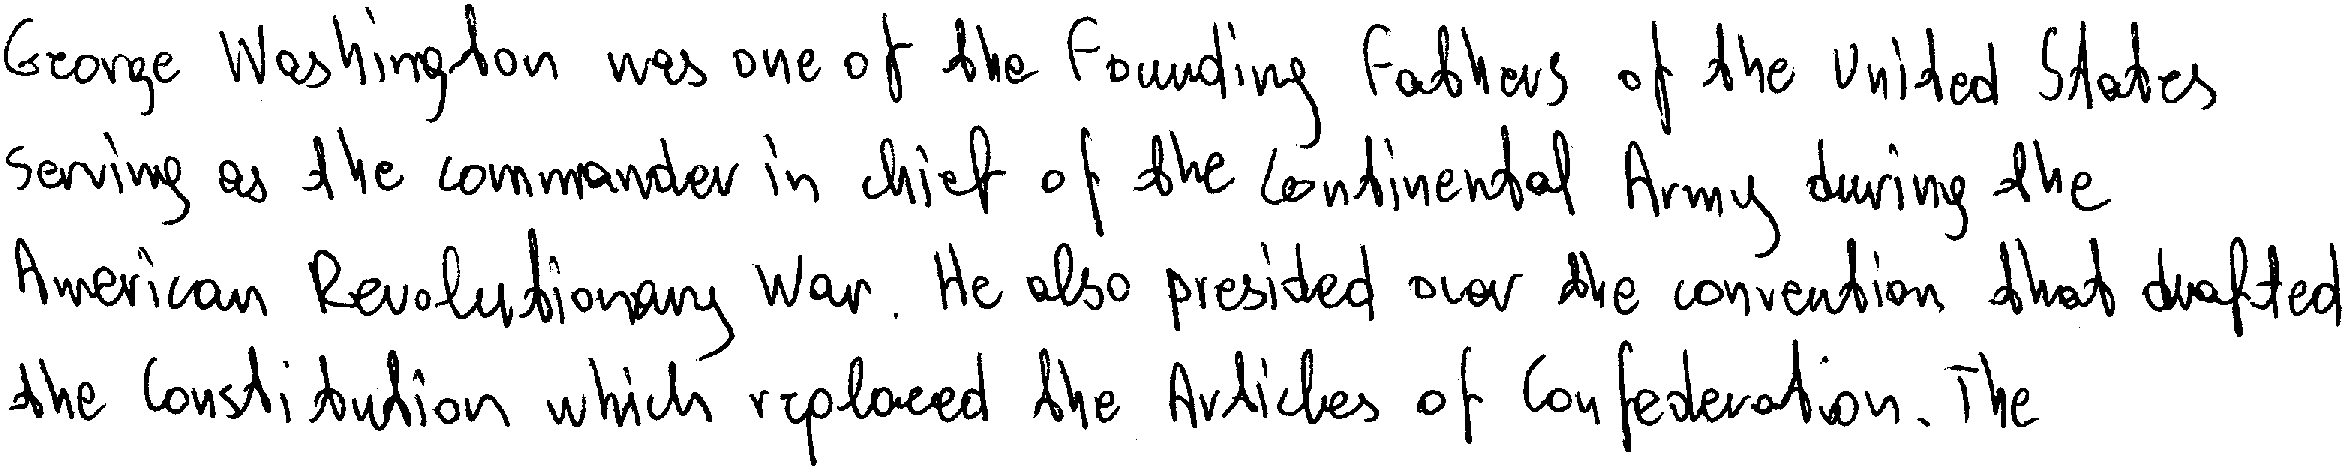 George Washington was one of the Founding Fathers of the United States
serving as the commander in chief of the Continental Army during the
American Revolutionary War. He also presided over the convention that drafted
the Constitution which replaced the Articles of Confederation. The